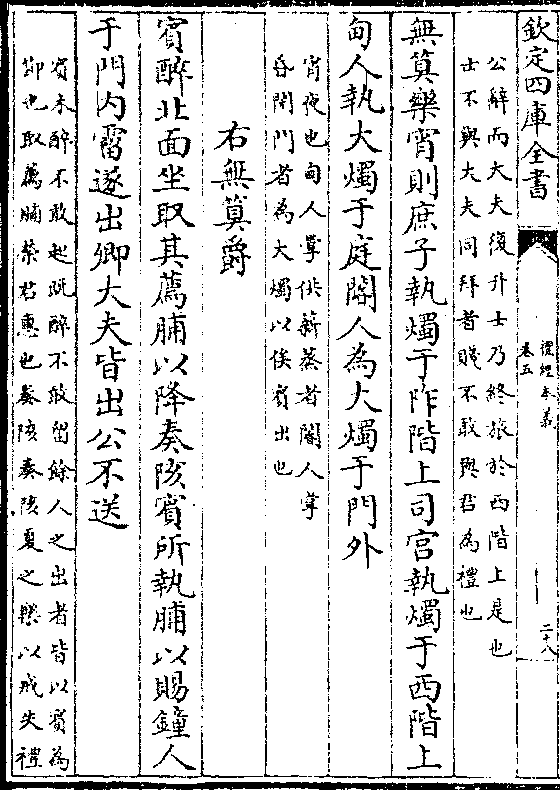 欽定四庫全書
禮經本義
卷五
二十八
公辭而大夫復升士乃終旅於西階上是也
士不與大夫同拜者賤不敢與君為禮也
無算樂宵則庶子執燭于阼階上司宫執燭于西階上
甸人執大燭于庭閽人為大燭于門外
宵夜也甸人掌供薪蒸者閽人掌
昏閉門者為大燭以俟賓出也
右無算爵
賓醉北面坐取其薦脯以降奏陔賓所執脯以賜鐘人
于門内霤遂出卿大夫皆出公不送
賓未醉不敢起既醉不敢留餘人之出者皆以賓為
節也取薦脯榮君惠也奏陔奏陔夏之樂以戒失禮